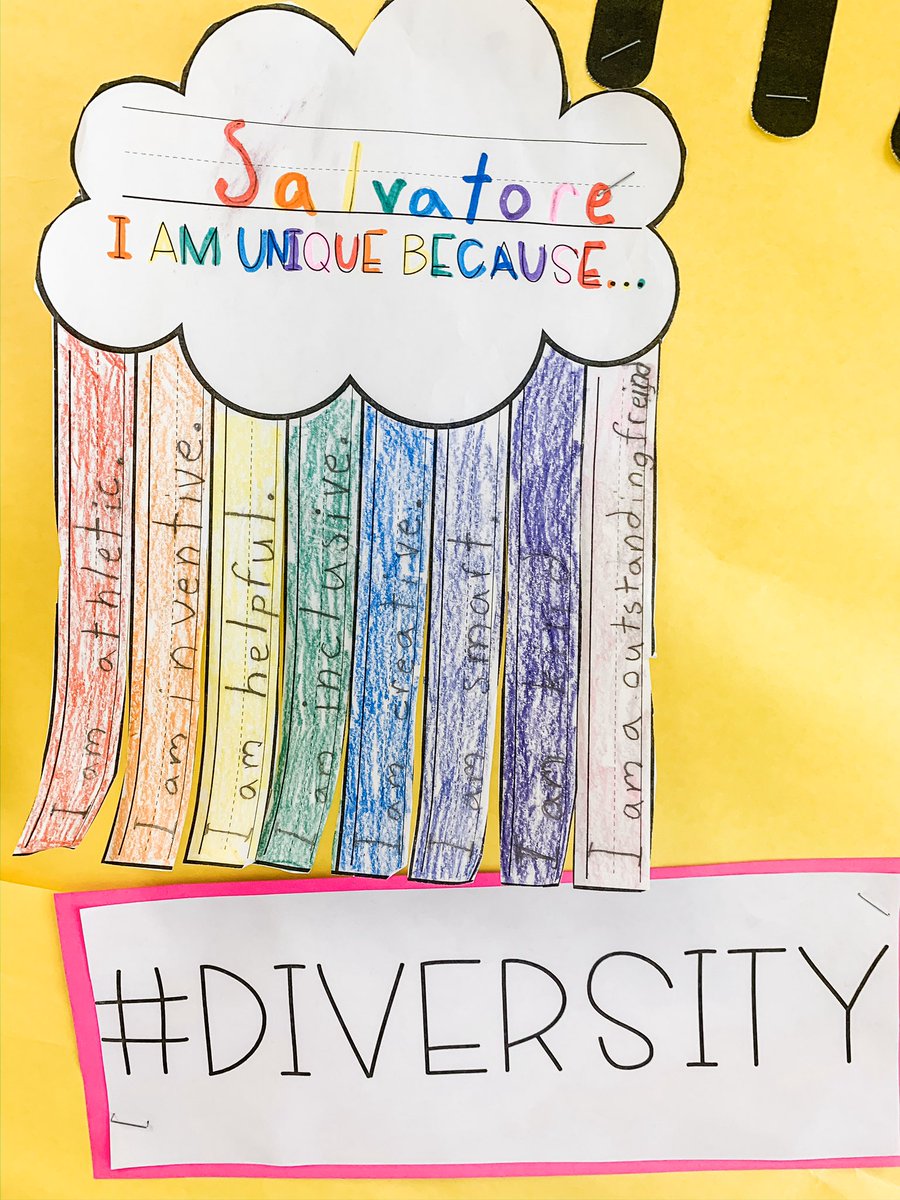 Salvatore
I AM UNIQUE BECAUSE...
I am athletic.
I am inventive.
I am helpful.
I am inclusive.
I am creative.
I am smart.
I am kind
I am a outstanding freind
#DIVERSITY